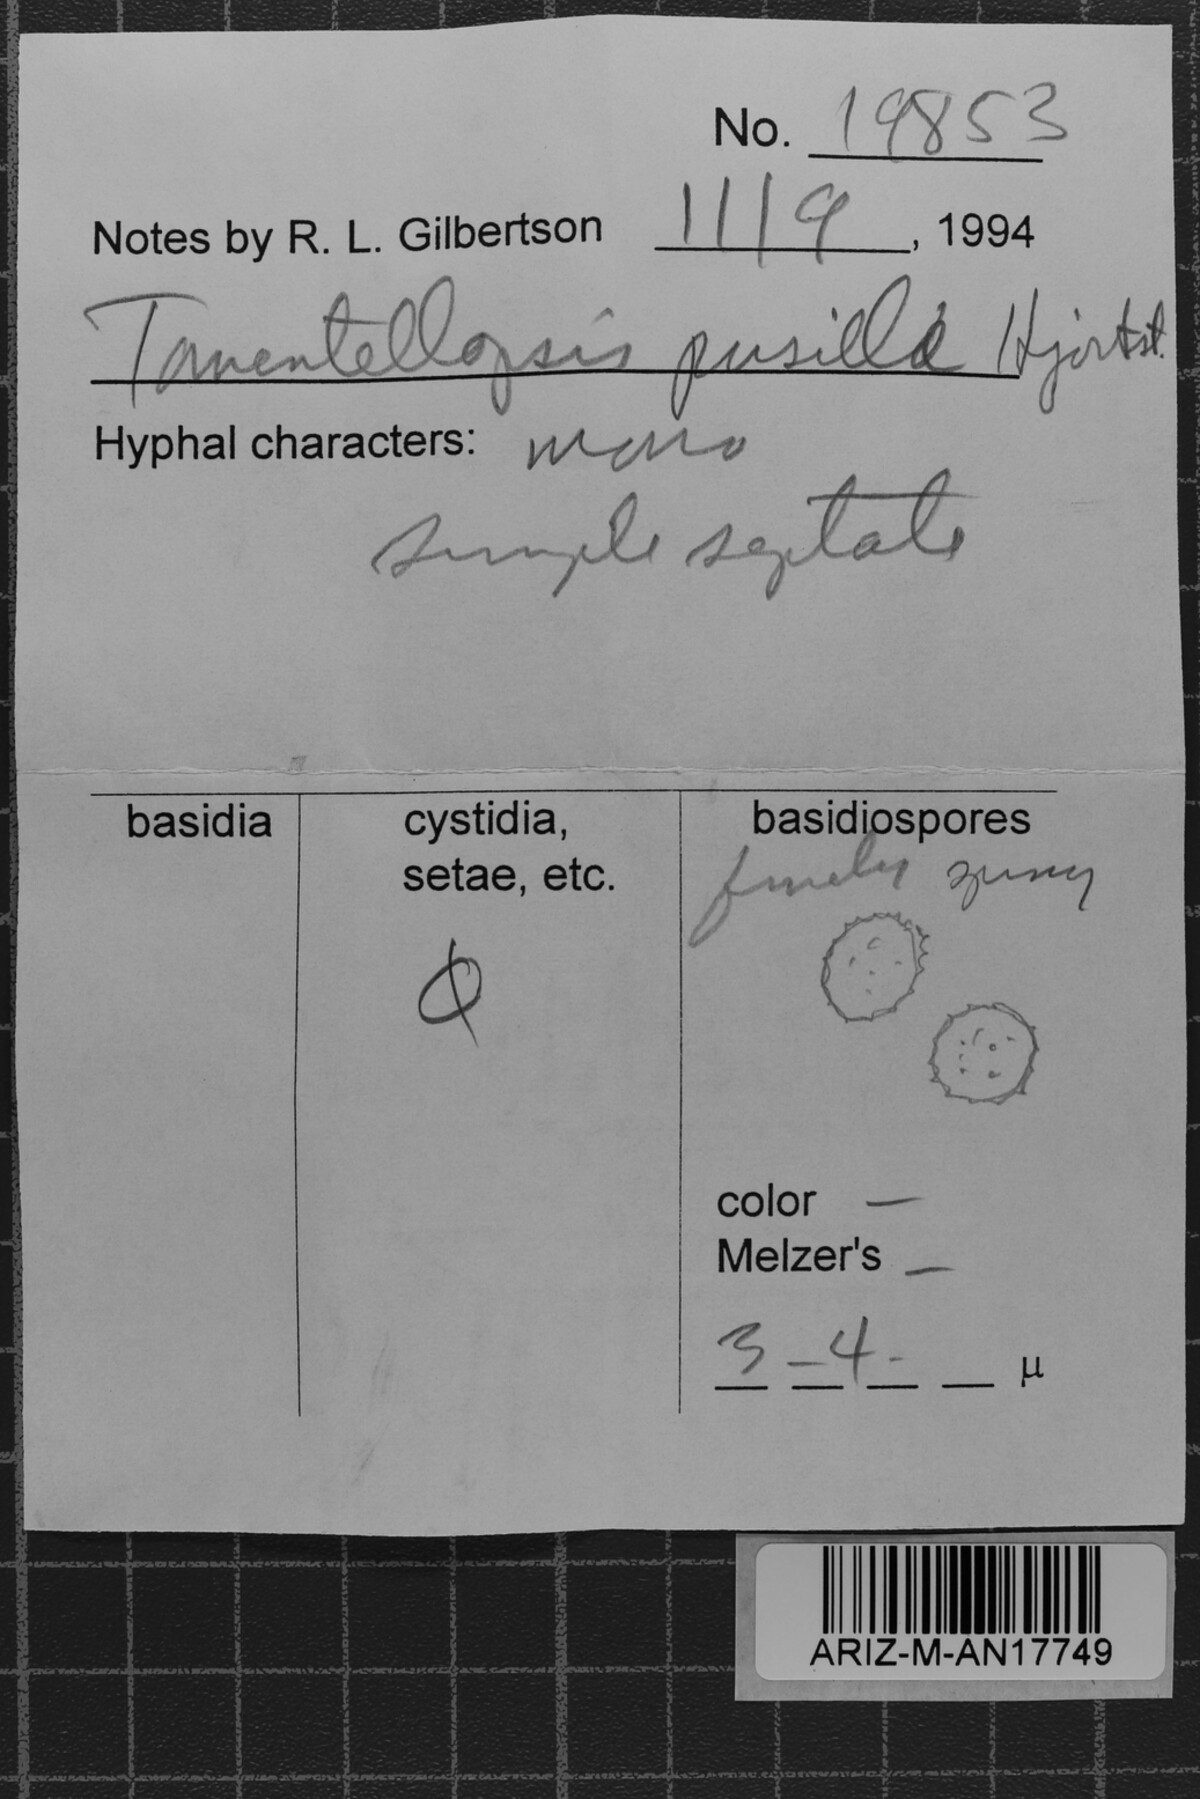 No. 19853
Notes by R. L. Gilbertson 11/9, 1994
Tomentellopsis pusilla Hjortst.
Hyphal characters: mono
simple septate
basidia
cystidia,
setae, etc.
Ø
basidiospores
finely spiny
color —
Melzer's —
3 – 4 - μ
ARIZ-M-AN17749